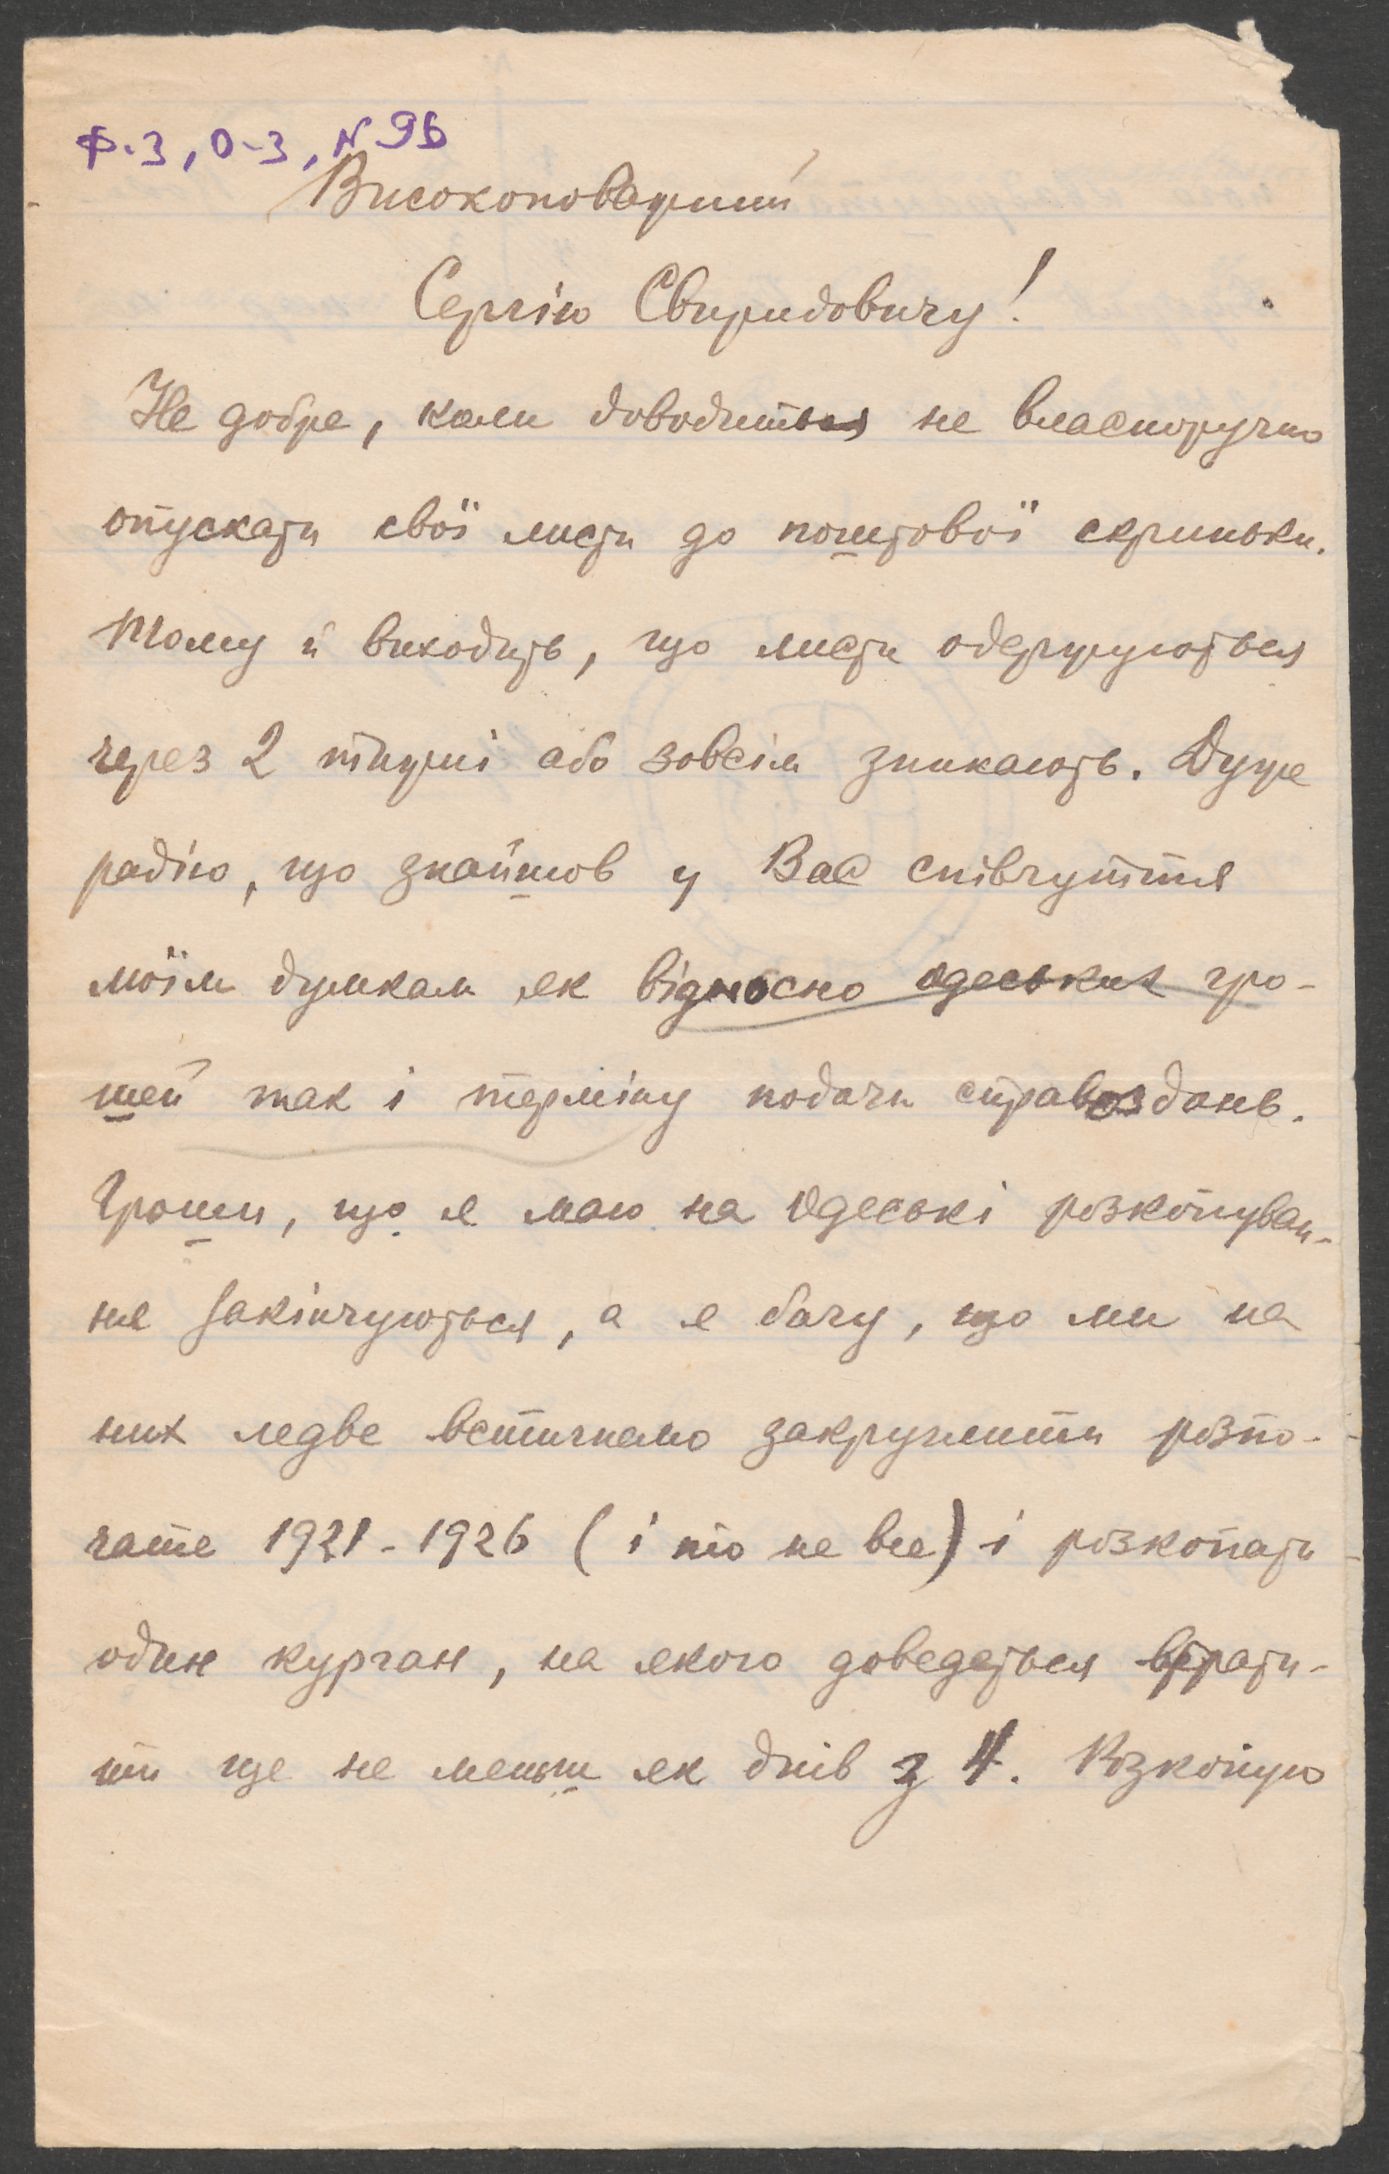 Ф.3, О-3, N 96
Високоповажний
Сергію Свиридовичу!
Не добре, коли доводиться не власноручно
опускати свої листи до поштової скриньки.
Тому й виходить, що листи одержуються
через 2 тижні або зовсім зникають. Дуже
радію, що знайшов у Вас співчуття
моїм думкам як відносно одеських гро-
шей так і терміну подачи справоздань.
Гроши, що я маю на Одеські розкопуван-
ня закінчуються, а я бачу, що ми на
них ледве встигнемо закруглити розпо-
чате 1921-1926 (і то не все) і розкопати
один курган, на якого доведеться втрати-
ти ще не меньш як днів з 4. Розкопую